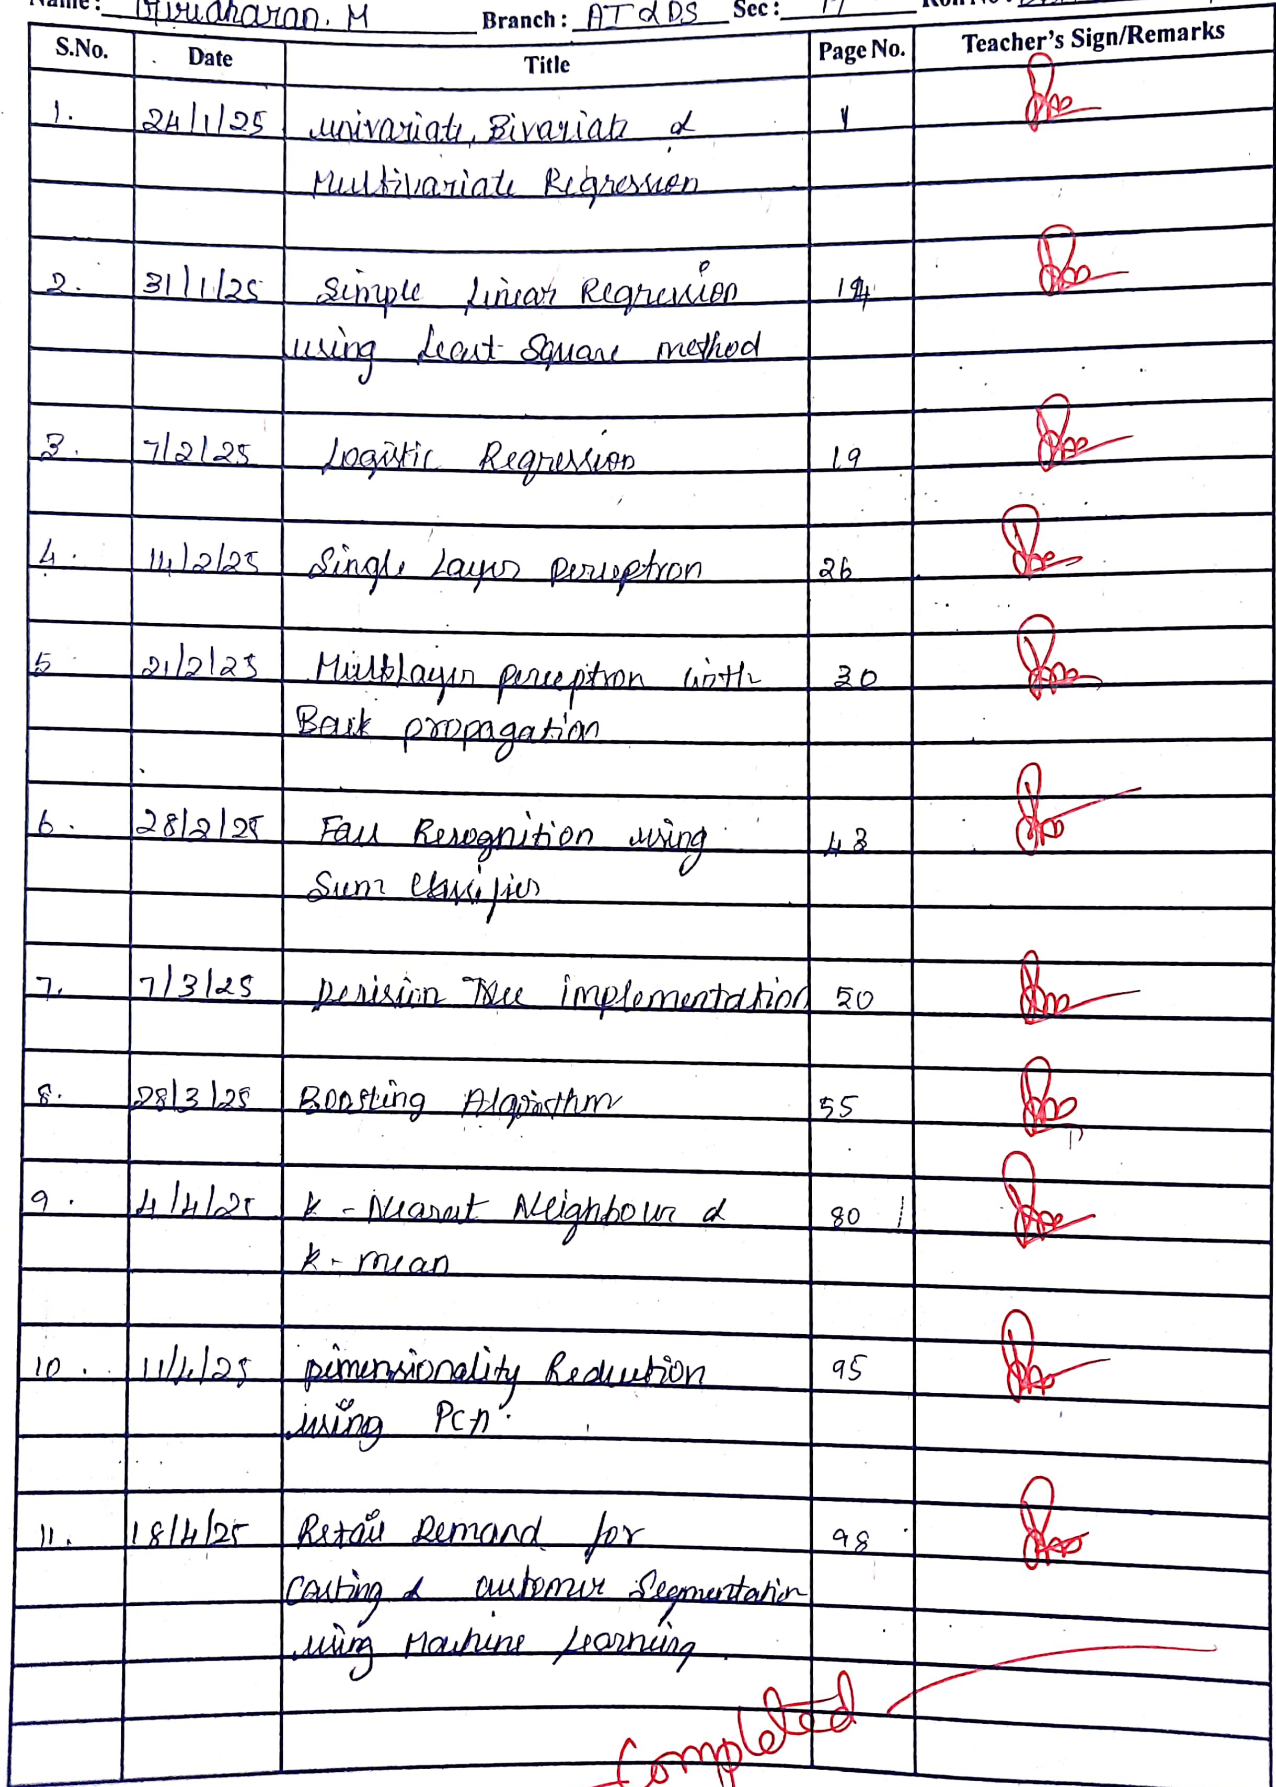 Name: Giridharan. M Branch: AI & DS Sec:
S.No. Date Title Page No. Teacher's Sign/Remarks
1. 24/1/25 univariate, Bivariate & 1
Multivariate Regression
2. 31/1/25 Simple Linear Regression 14
using Least Square method
3. 7/2/25 Logistic Regression 19
4. 14/2/25 Single Layer perceptron 26
5 21/2/25 MultiLayer perceptron with 30
Back propagation
6. 28/2/25 Face Recognition using 43
Svm Classifier
7. 7/3/25 Decision Tree implementation 50
8. 28/3/25 Boosting Algorithm 55
9. 4/4/25 k - Nearest Neighbour & 80
k - mean
10. 11/4/25 Dimensionality Reduction 95
using PCA
11. 18/4/25 Retail Demand for 98
casting & customer Segmentation
using Machine Learning
Completed